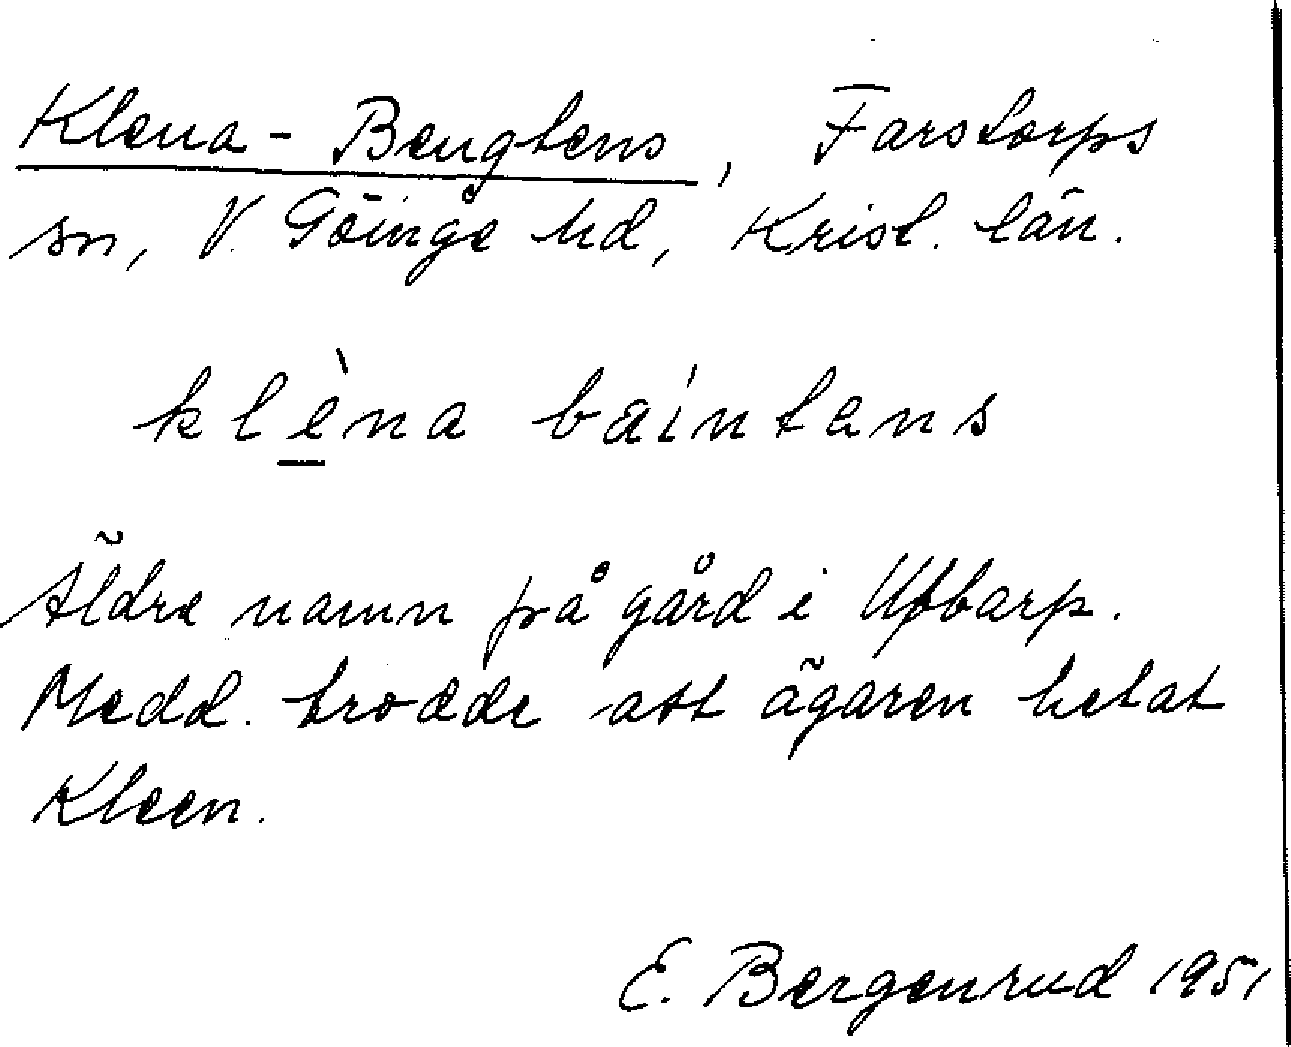 Klena-Bengtens, Farstorps
sn, V. Göinge hd, Krist. län.
klèna baíntens
Äldre namn på gård i Ubbarp.
Medd. trodde att ägaren hetat
Kleen.
E. Bergenrud 1951